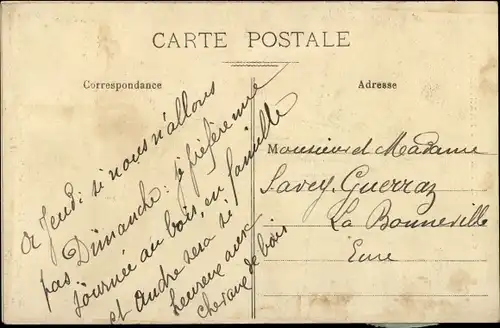 CARTE POSTALE
Correspondance
Adresse
A Jeudi si nous n'allons
pas Dimanche : je préfère une
journée au bois, en famille
et André sera si
heureux aux
chevaux de bois
Monsieur et Madame
Savey-Guerraz
La Bonneville
Eure